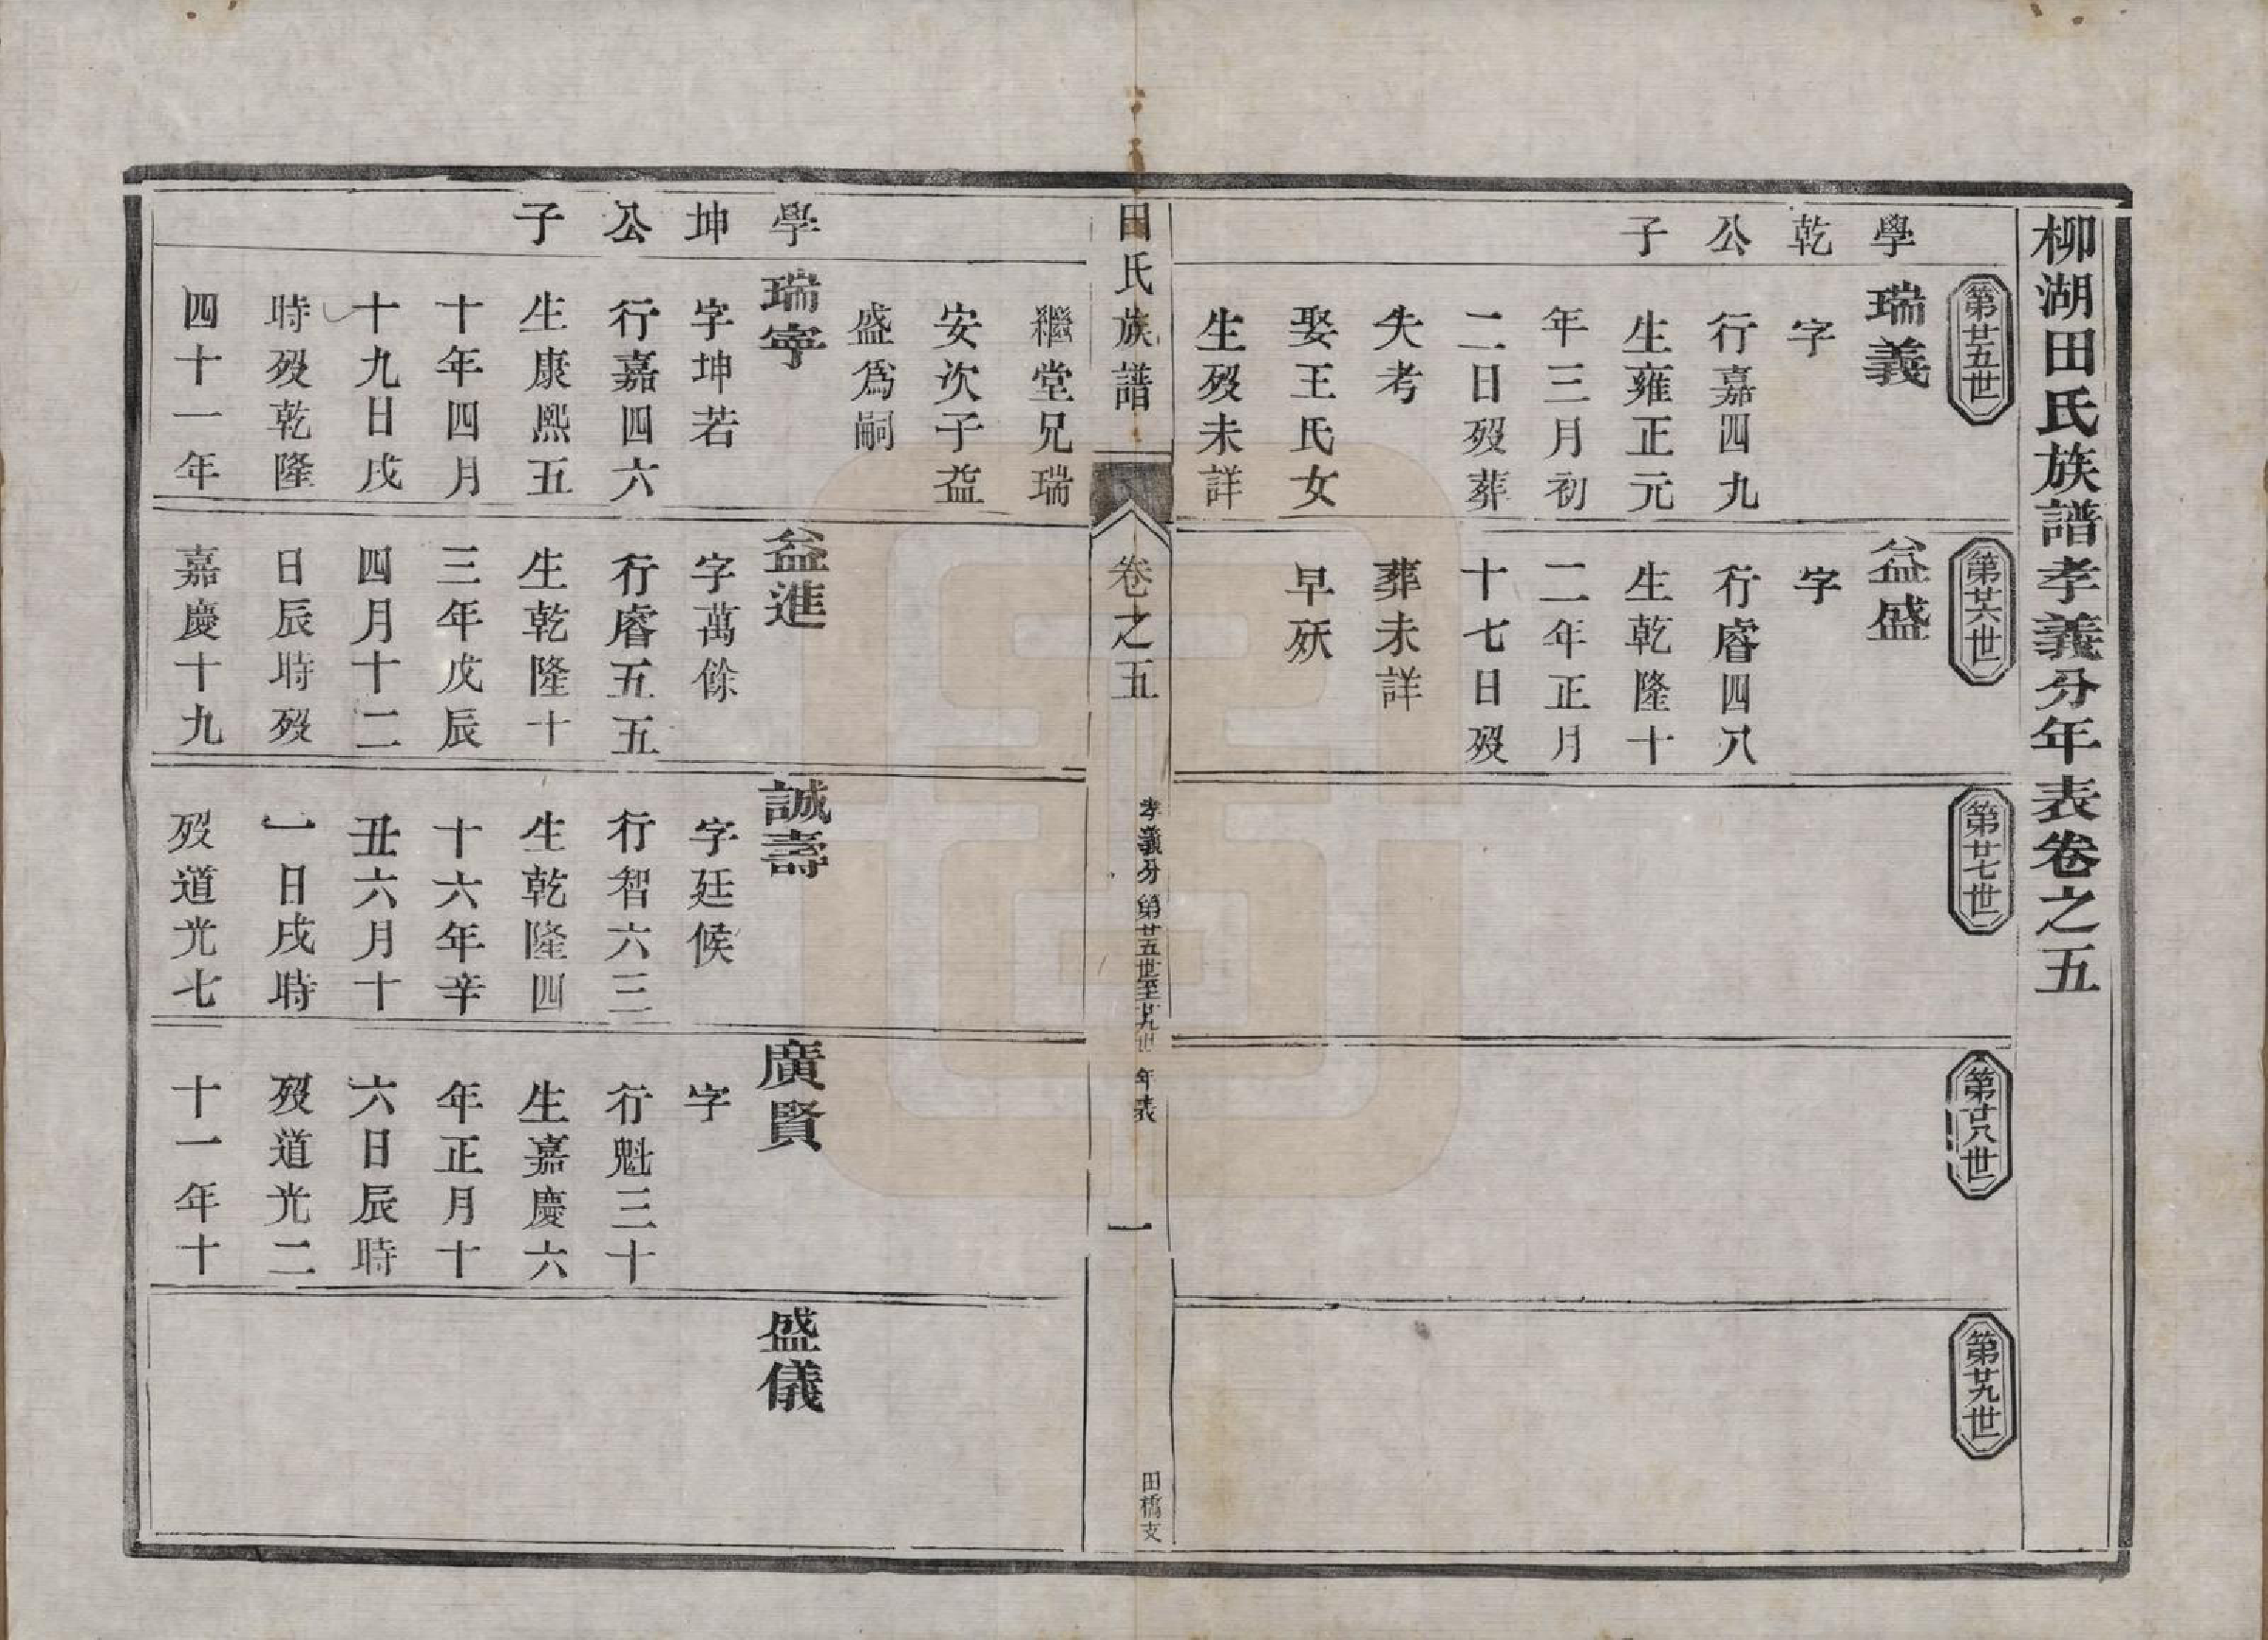 柳湖田氏族譜孝義分年表卷之五
第廿五世
學乾公子
瑞義
字
行嘉四九
生雍正元
年三月初
二日歿葬
失考
娶王氏女
生歿未詳
第廿六世
益盛
字
行睿四八
生乾隆十
二年正月
十七日歿
葬未詳
早殀
第廿七世
第廿八世
第廿九世
田氏族譜
卷之五
孝義分 第廿五世至廿九世 年表
一
田橋支
繼堂兄瑞
安次子益
盛爲嗣
學坤公子
瑞寧
字坤若
行嘉四六
生康熙五
十年四月
十九日戌
時歿乾隆
四十一年
益進
字萬餘
行睿五五
生乾隆十
三年戊辰
四月十二
日辰時歿
嘉慶十九
誠壽
字廷候
行智六三
生乾隆四
十六年辛
丑六月十
一日戌時
歿道光七
廣賢
字
行魁三十
生嘉慶六
年正月十
六日辰時
歿道光二
十一年十
盛儀